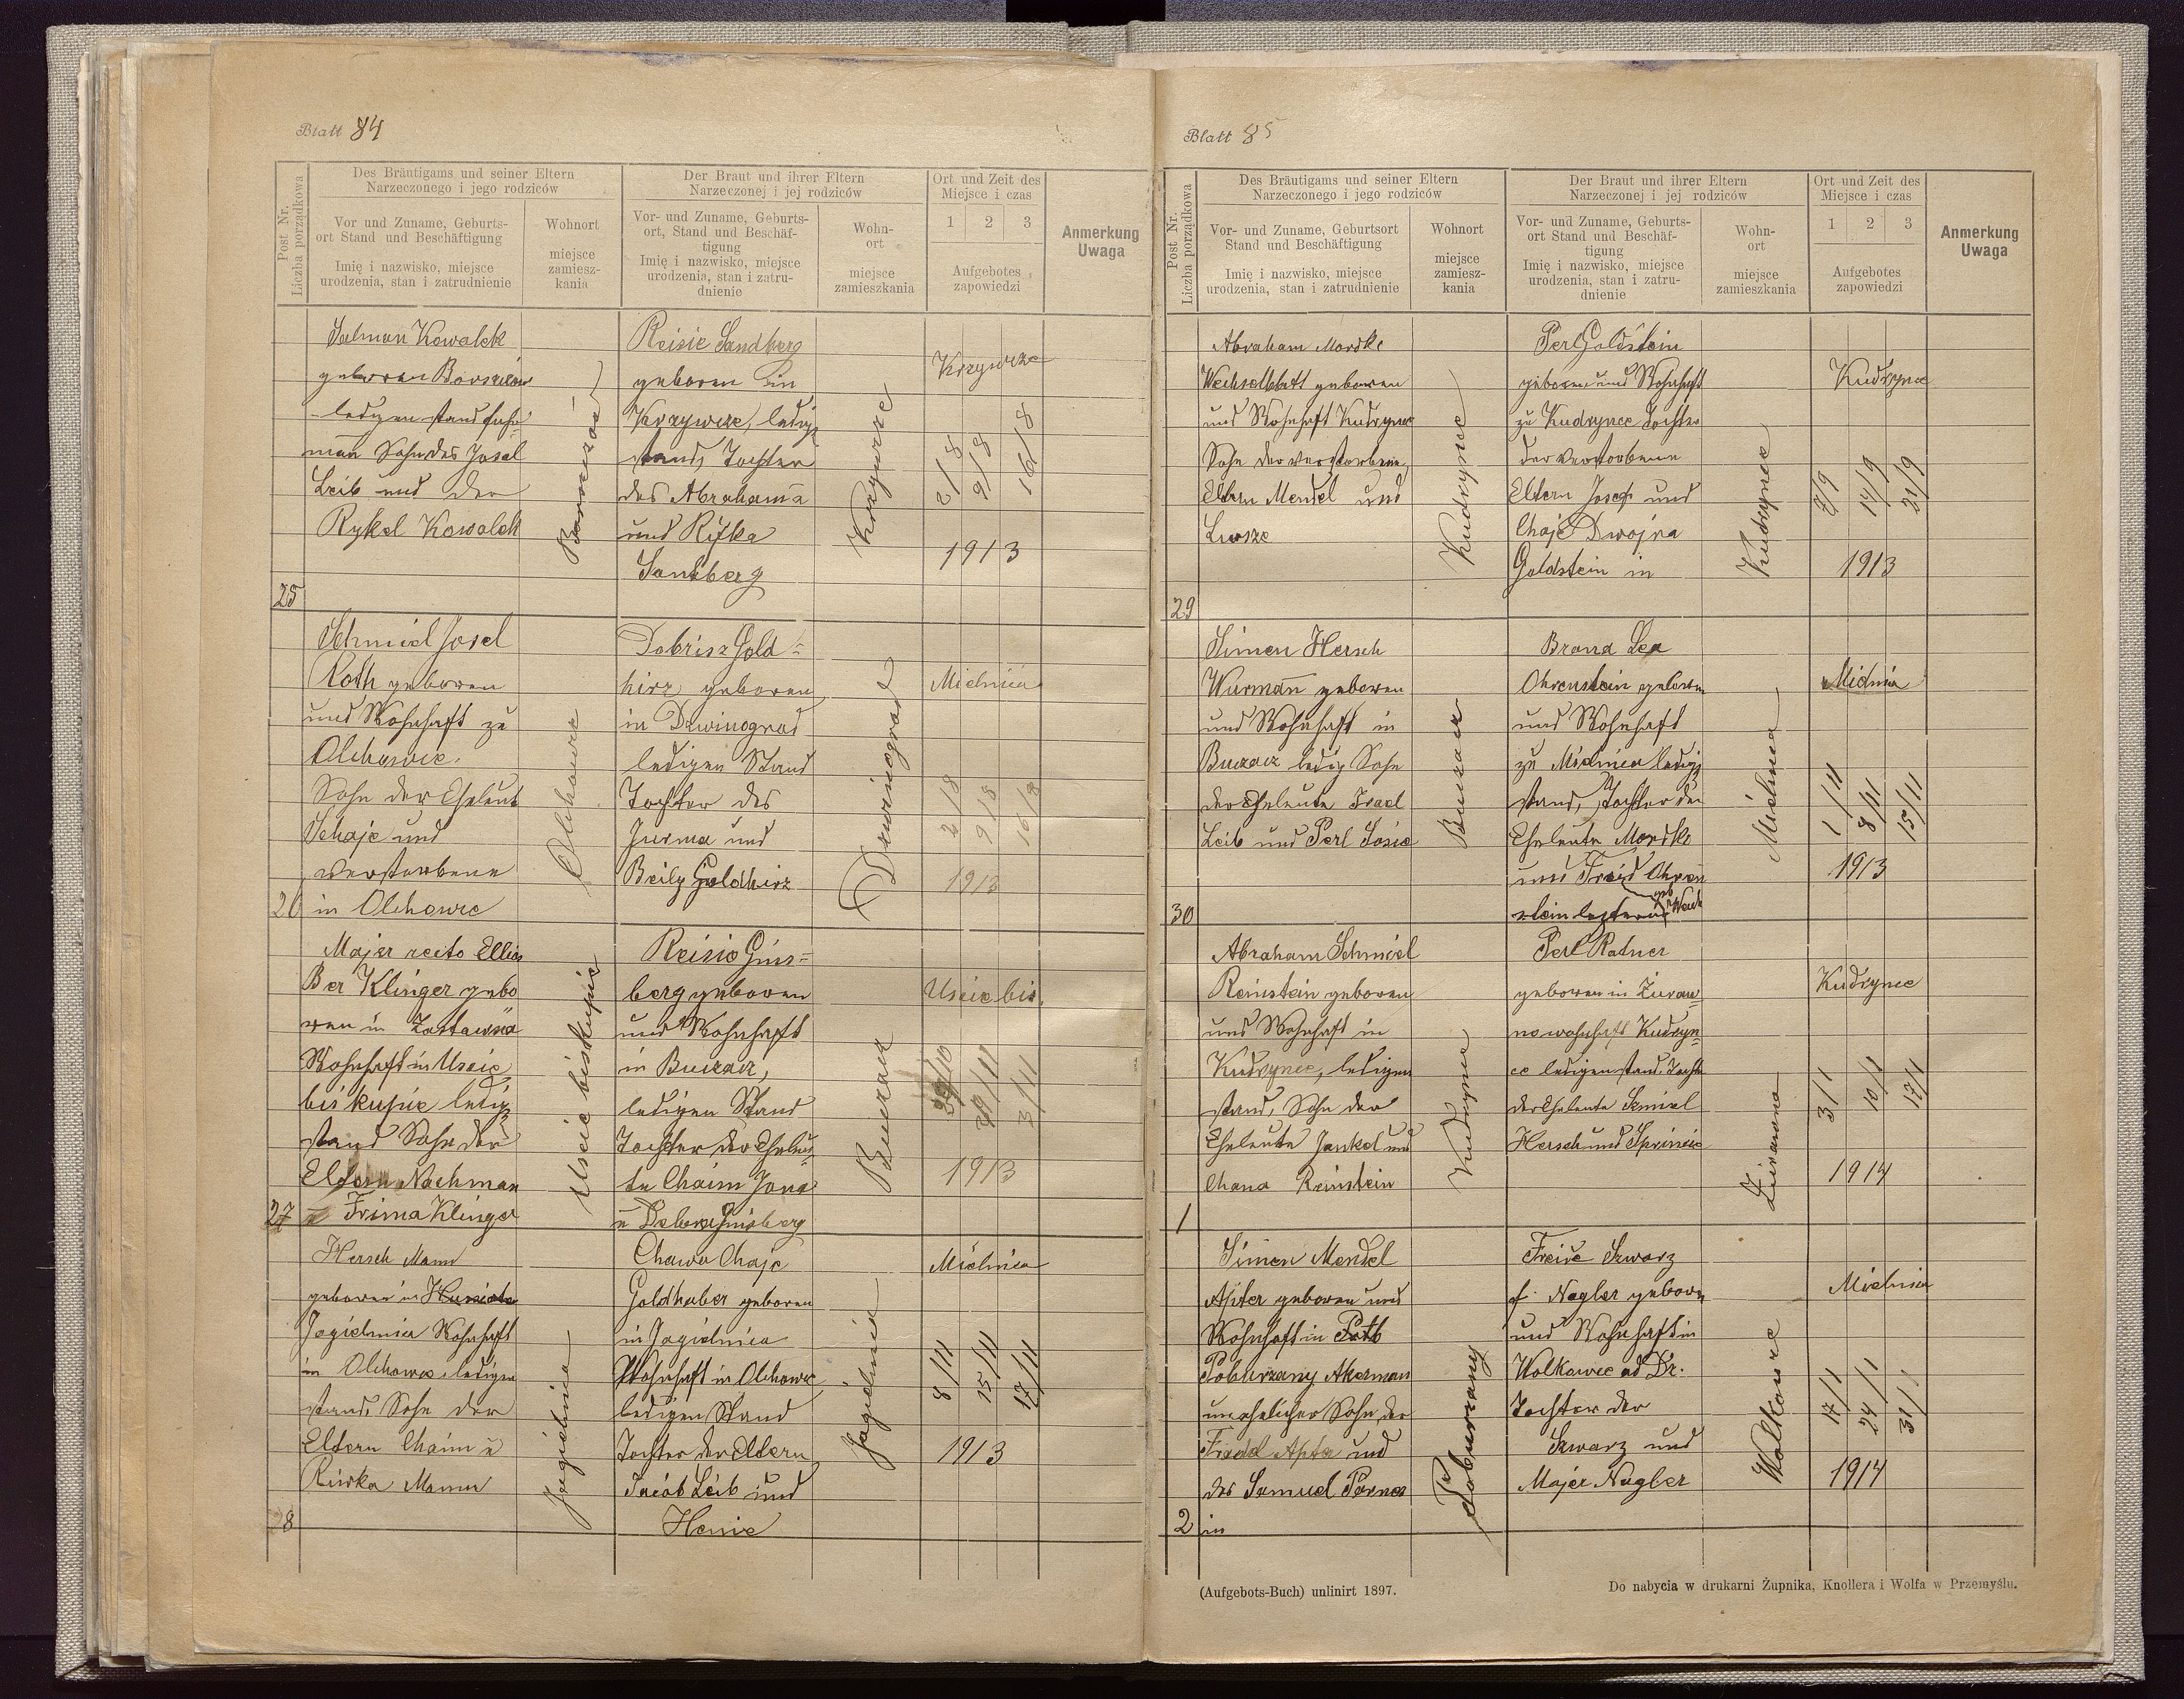 Blatt 84
Post Nr.
Liczba porządkowa
Des Bräutigams und seiner Eltern
Narzeczonego i jego rodziców
Vor und Zuname, Geburts-
ort Stand und Beschäftigung
Imię i nazwisko, miejsce
urodzenia, stan i zatrudnienie
Wohnort
miejsce
zamiesz-
kania
Der Braut und ihrer Eltern
Narzeczonej i jej rodziców
Vor- und Zuname, Geburts-
ort, Stand und Beschäf-
tigung
Imię i nazwisko, miejsce
urodzenia, stan i zatru-
dnienie
Wohn-
ort
miejsce
zamieszkania
Ort und Zeit des
Miejsce i czas
1 2 3
Aufgebotes
zapowiedzi
Anmerkung
Uwaga
25
Salman Kowalek
geboren
ledigen stand
mann Sohn des Josel
Leib und der
Rykel Kowalek
Reisie Sandberg
geboren in
Krzywcze, ledig
stand, Tochter
des Abraham
und Rifka
Sandberg
Krzywcze
Krzywcze
2/8 9/8 16/8
1913
26
Schmiel Josel
Roth geboren
und Wohnhaft zu
Olchowce.
Sohn der Eheleut
Schaje und
verstorbene
in Olchowce
Olchowce
Dobrisz Gold=
hirz geboren
in Dzwinograd
ledigen Stand
Tochter des
und
Beily Goldhirz
Dzwinograd
Mielnica
2/8 9/8 16/8
1913
27
Majer recto Ellias
Ber Klinger gebo
ren in Zastawna
Wohnhaft in Uscie
biskupie ledig
stand Sohn der
Eltern Nachman
u Frima Klinger
Uscie biskupie
Reisie Gins=
berg geboren
und Wohnhaft
in Buczacz,
ledigen Stand
Tochter der Eheleu
te Chaim Jona
u Ginsberg
Buczacz
Uscie bis.
3/11
1913
28
Hersch Mann
geboren in
Jagielnica Wohnhaft
in Olchowce, ledigen
stand, Sohn der
Eltern Chaim u
Riwka Mann
Jagielnica
Chawa Chaje
Goldhaber geboren
in Jagielnica
Wohnhaft in Olchowce
ledigen Stand
Tochter der Eltern
Jacob Leib und
Henie
Jagielnica
Mielnica
8/11 15/11 17/11
1913
Blatt 85
Post Nr.
Liczba porządkowa
Des Bräutigams und seiner Eltern
Narzeczonego i jego rodziców
Vor- und Zuname, Geburtsort
Stand und Beschäftigung
Imię i nazwisko, miejsce
urodzenia, stan i zatrudnienie
Wohnort
miejsce
zamiesz-
kania
Der Braut und ihrer Eltern
Narzeczonej i jej rodziców
Vor- und Zuname, Geburts-
ort Stand und Beschäf-
tigung
Imię i nazwisko, miejsce
urodzenia, stan i zatru-
dnienie
Wohn-
ort
miejsce
zamieszkania
Ort und Zeit des
Miejsce i czas
1 2 3
Aufgebotes
zapowiedzi
Anmerkung
Uwaga
29
Abraham Mordke
Wechselblatt geboren
und Wohnhaft Kudrynce
Sohn der verstorbene
Eltern Mendel und
Kudrynce
Perl Goldstein
geboren und Wohnhaft
zu Kudrynce Tochter
der verstorbene
Eltern Josef und
Chaje Dwojra
Goldstein in
Kudrynce
Kudrynce
7/9 14/9 21/9
1913
30
Simen Hersch
Wurmann geboren
und Wohnhaft in
Buczacz ledig Sohn
der Eheleute Israel
Leib und Perl Sosie
Buczacz
Brana Lea
Ohrenstein geboren
und Wohnhaft
zu Mielnica ledig
stand, Tochter der
Eheleute Mordko
und Freid Ohren
stein
Mielnica
Mielnica
1/11 8/11 15/11
1913
1
Abraham Schmiel
Reinstein geboren
und Wohnhaft in
Kudrynce, ledigen
stand, Sohn der
Eheleute Jankel und
Chana Reinstein
Kudrynce
Perl Ratner
geboren in Żuraw
no wohnhaft Kudryn
ce ledigen stand, Tochter
der Eheleute Szmiel
Hersch und Sprincie
Żurawna
Kudrynce
3/1 10/1 17/1
1914
2
Simen Mendel
Apter geboren und
Wohnhaft in
Akerman
unehelicher Sohn der
Friedel Apter und
des Samuel
in
Freide Szwarz
f. Nagler geboren
und Wohnhaft in
Wolkowce ad Dr.
Tochter der
Szwarz und
Majer Nagler
Wolkowce
Mielnica
17/1 24/1 31/1
1914
(Aufgebots-Buch) unlinirt 1897.
Do nabycia w drukarni Żupnika, Knollera i Wolfa w Przemyślu.